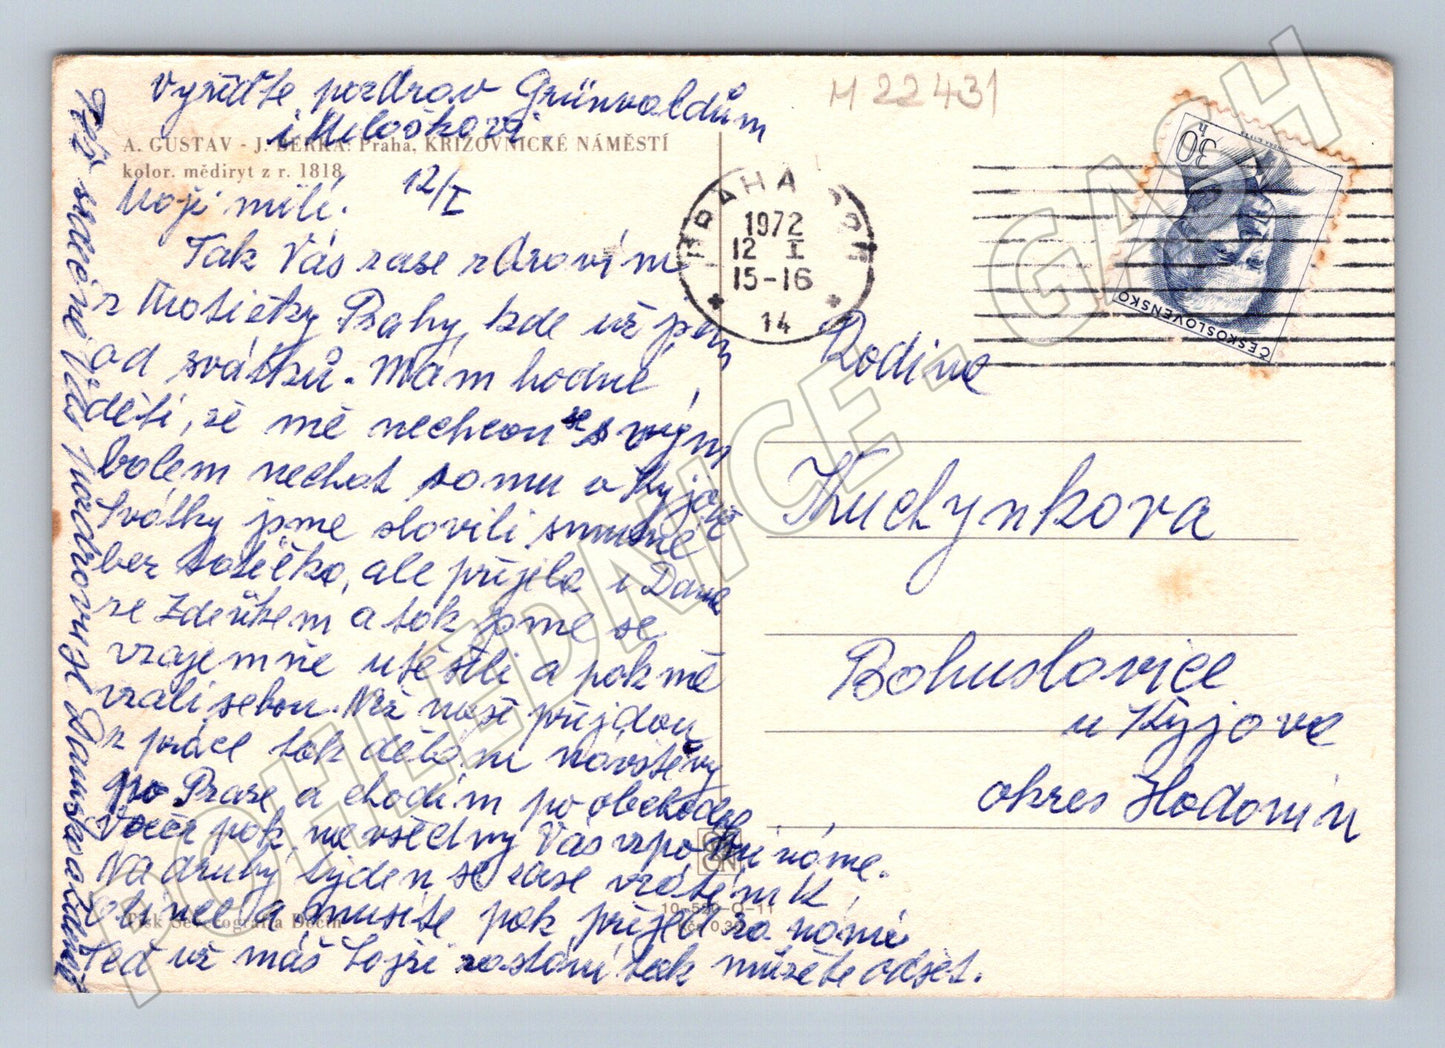 Vyřiďte pozdrav Grünvaldům
i Miloškovi
M 22431
A. GUSTAV - J. BERKA: Praha, KŘIŽOVNICKÉ NÁMĚSTÍ
kolor. mědiryt z r. 1818
Moji milí. 12/I
Tak Vás zase zdravím
z Matičky Prahy, kde už jsem
od svátků. Mám hodné
děti, že mě nechcou se svým
bolem nechat samu v Kyjově
Svátky jsme slavili smutně
bez tatíčka, ale přijela i Dana
ze Zdeňkem a tak jsme se
vzájemně utěšili a pak mě
vzali sebou. Než naši přijdou
z práce tak dělám návštěvy
po Praze a chodím po obchodech
Večer pak na všechny Vás vzpomínáme.
Na druhý týden se zase vrátím k
a musíte pak přijet za námi
Teď už máš Lojzi tak můžete odjet.
Též srdečně Vás pozdravuje Danuška a Zdeněk
Tisk Severografia Děčín
PRAHA
1972
12 I
15-16
14
30 h
ČESKOSLOVENSKO
Rodina
Kuchynkova
Bohuslavice
u Kyjova
okres Hodonín
POHLEDNICE - GASH